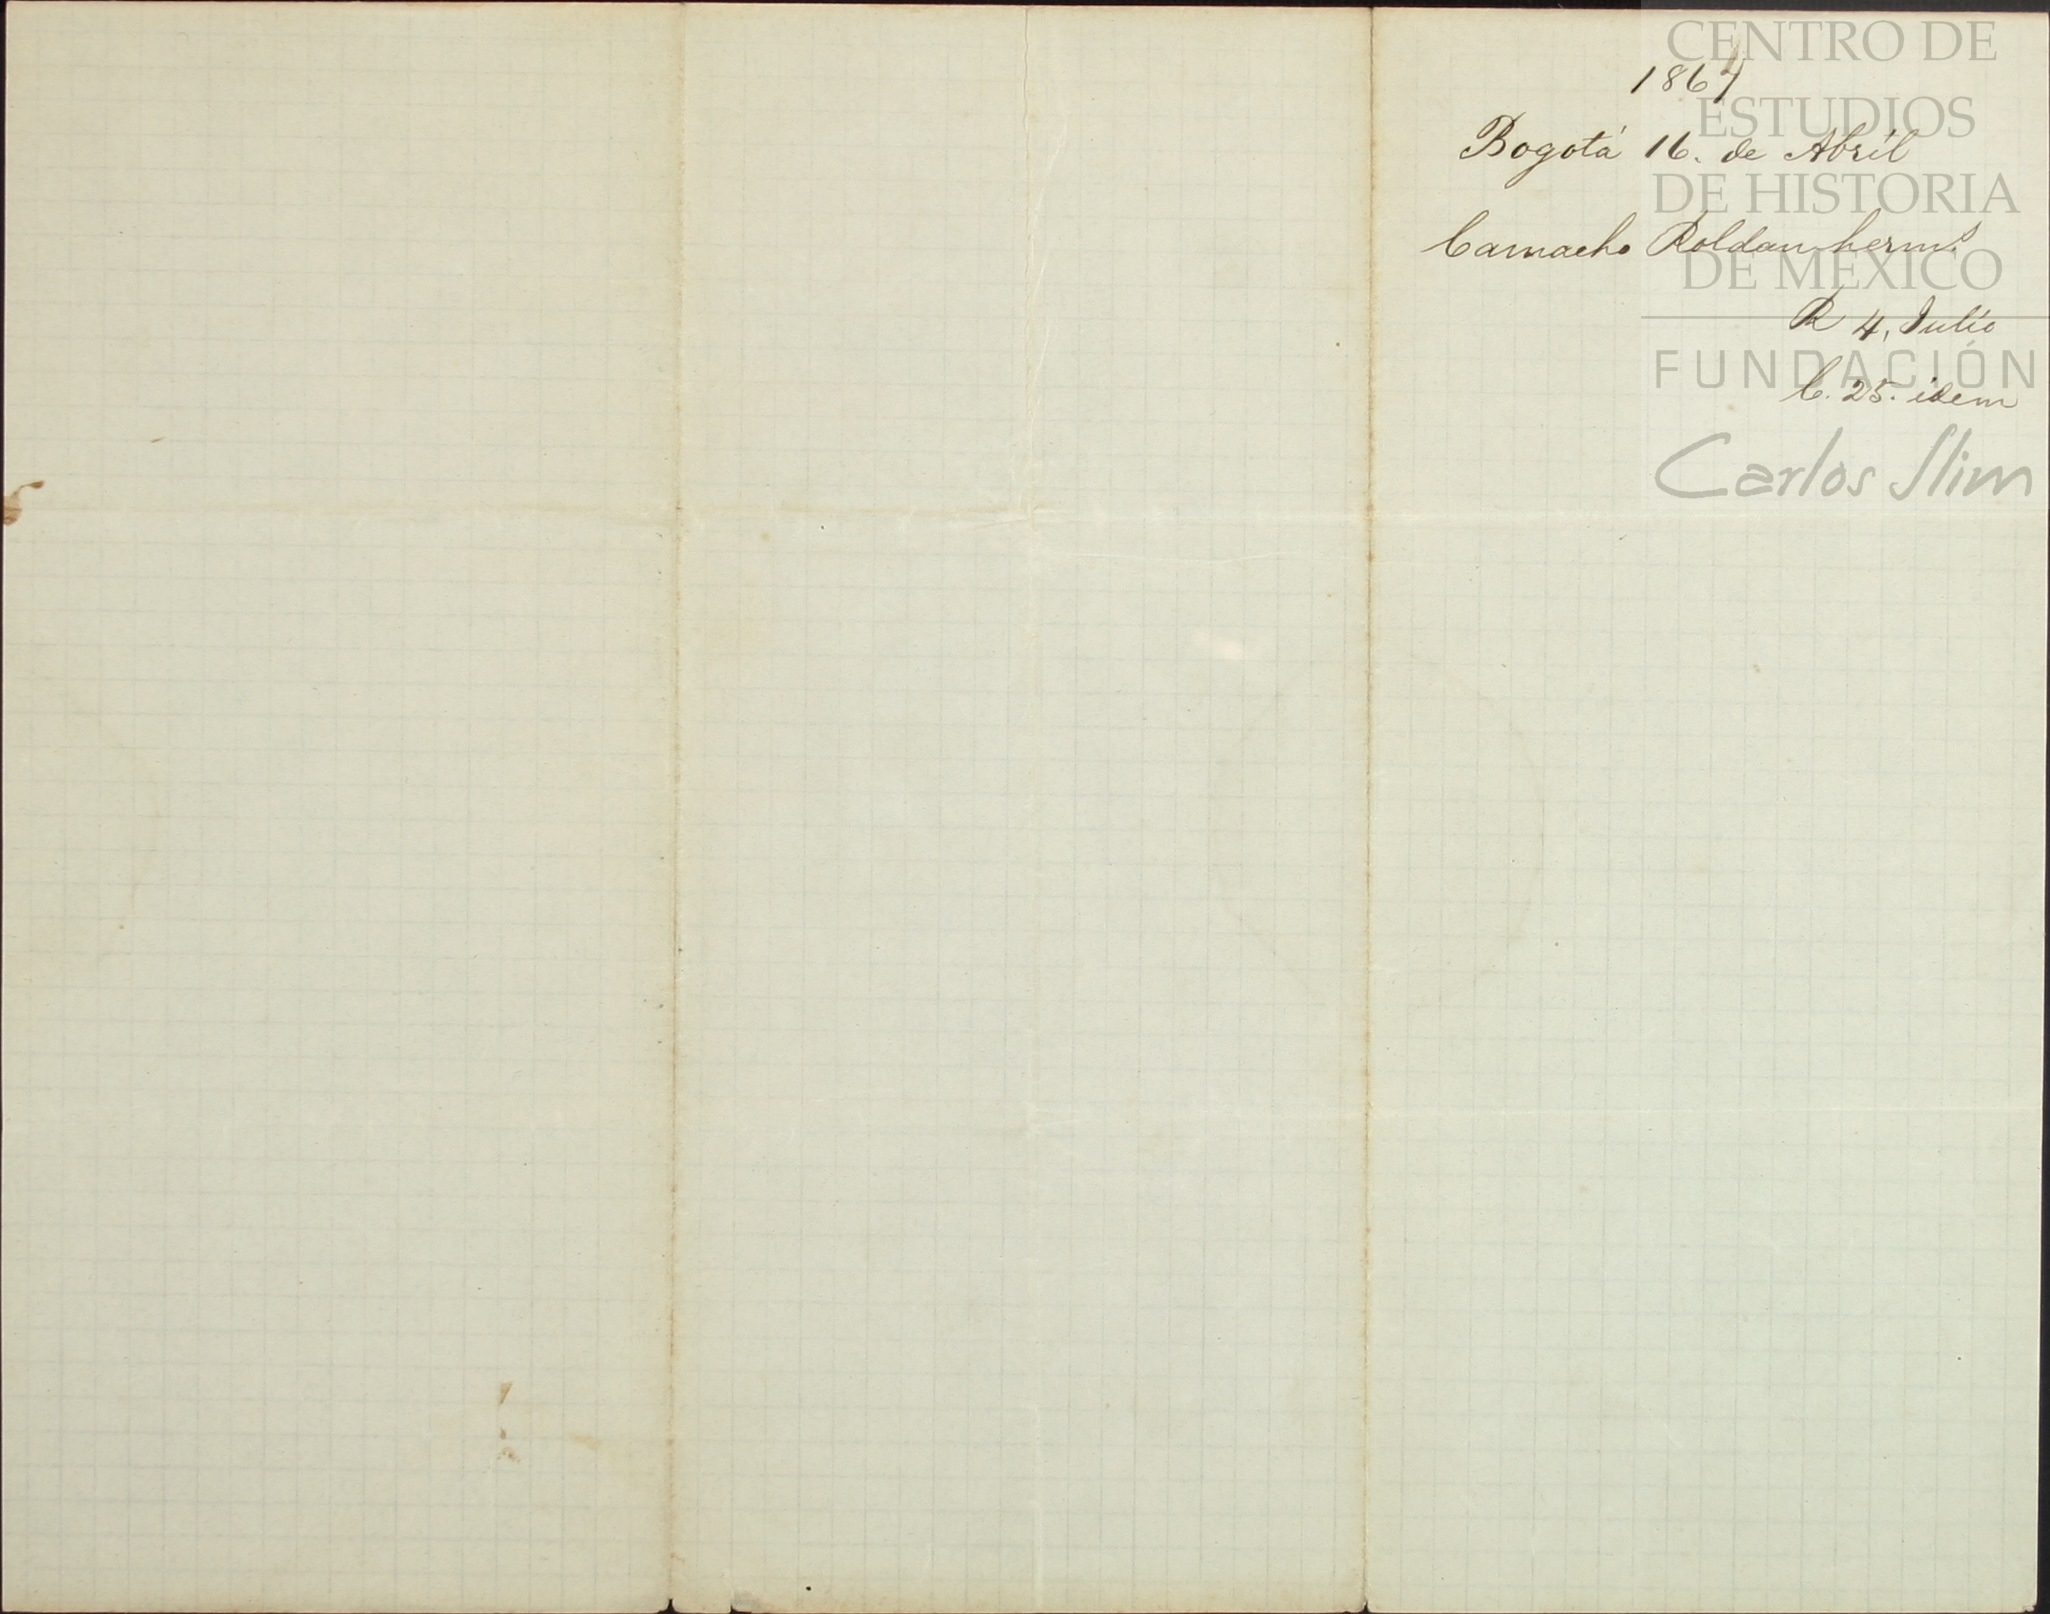 CENTRO DE
1867
ESTUDIOS
Bogotá 16. de Abril
DE HISTORIA
Camacho Roldan herms.
DE MÉXICO
R 4, Julio
FUNDACIÓN
C. 25. idem
Carlos Slim